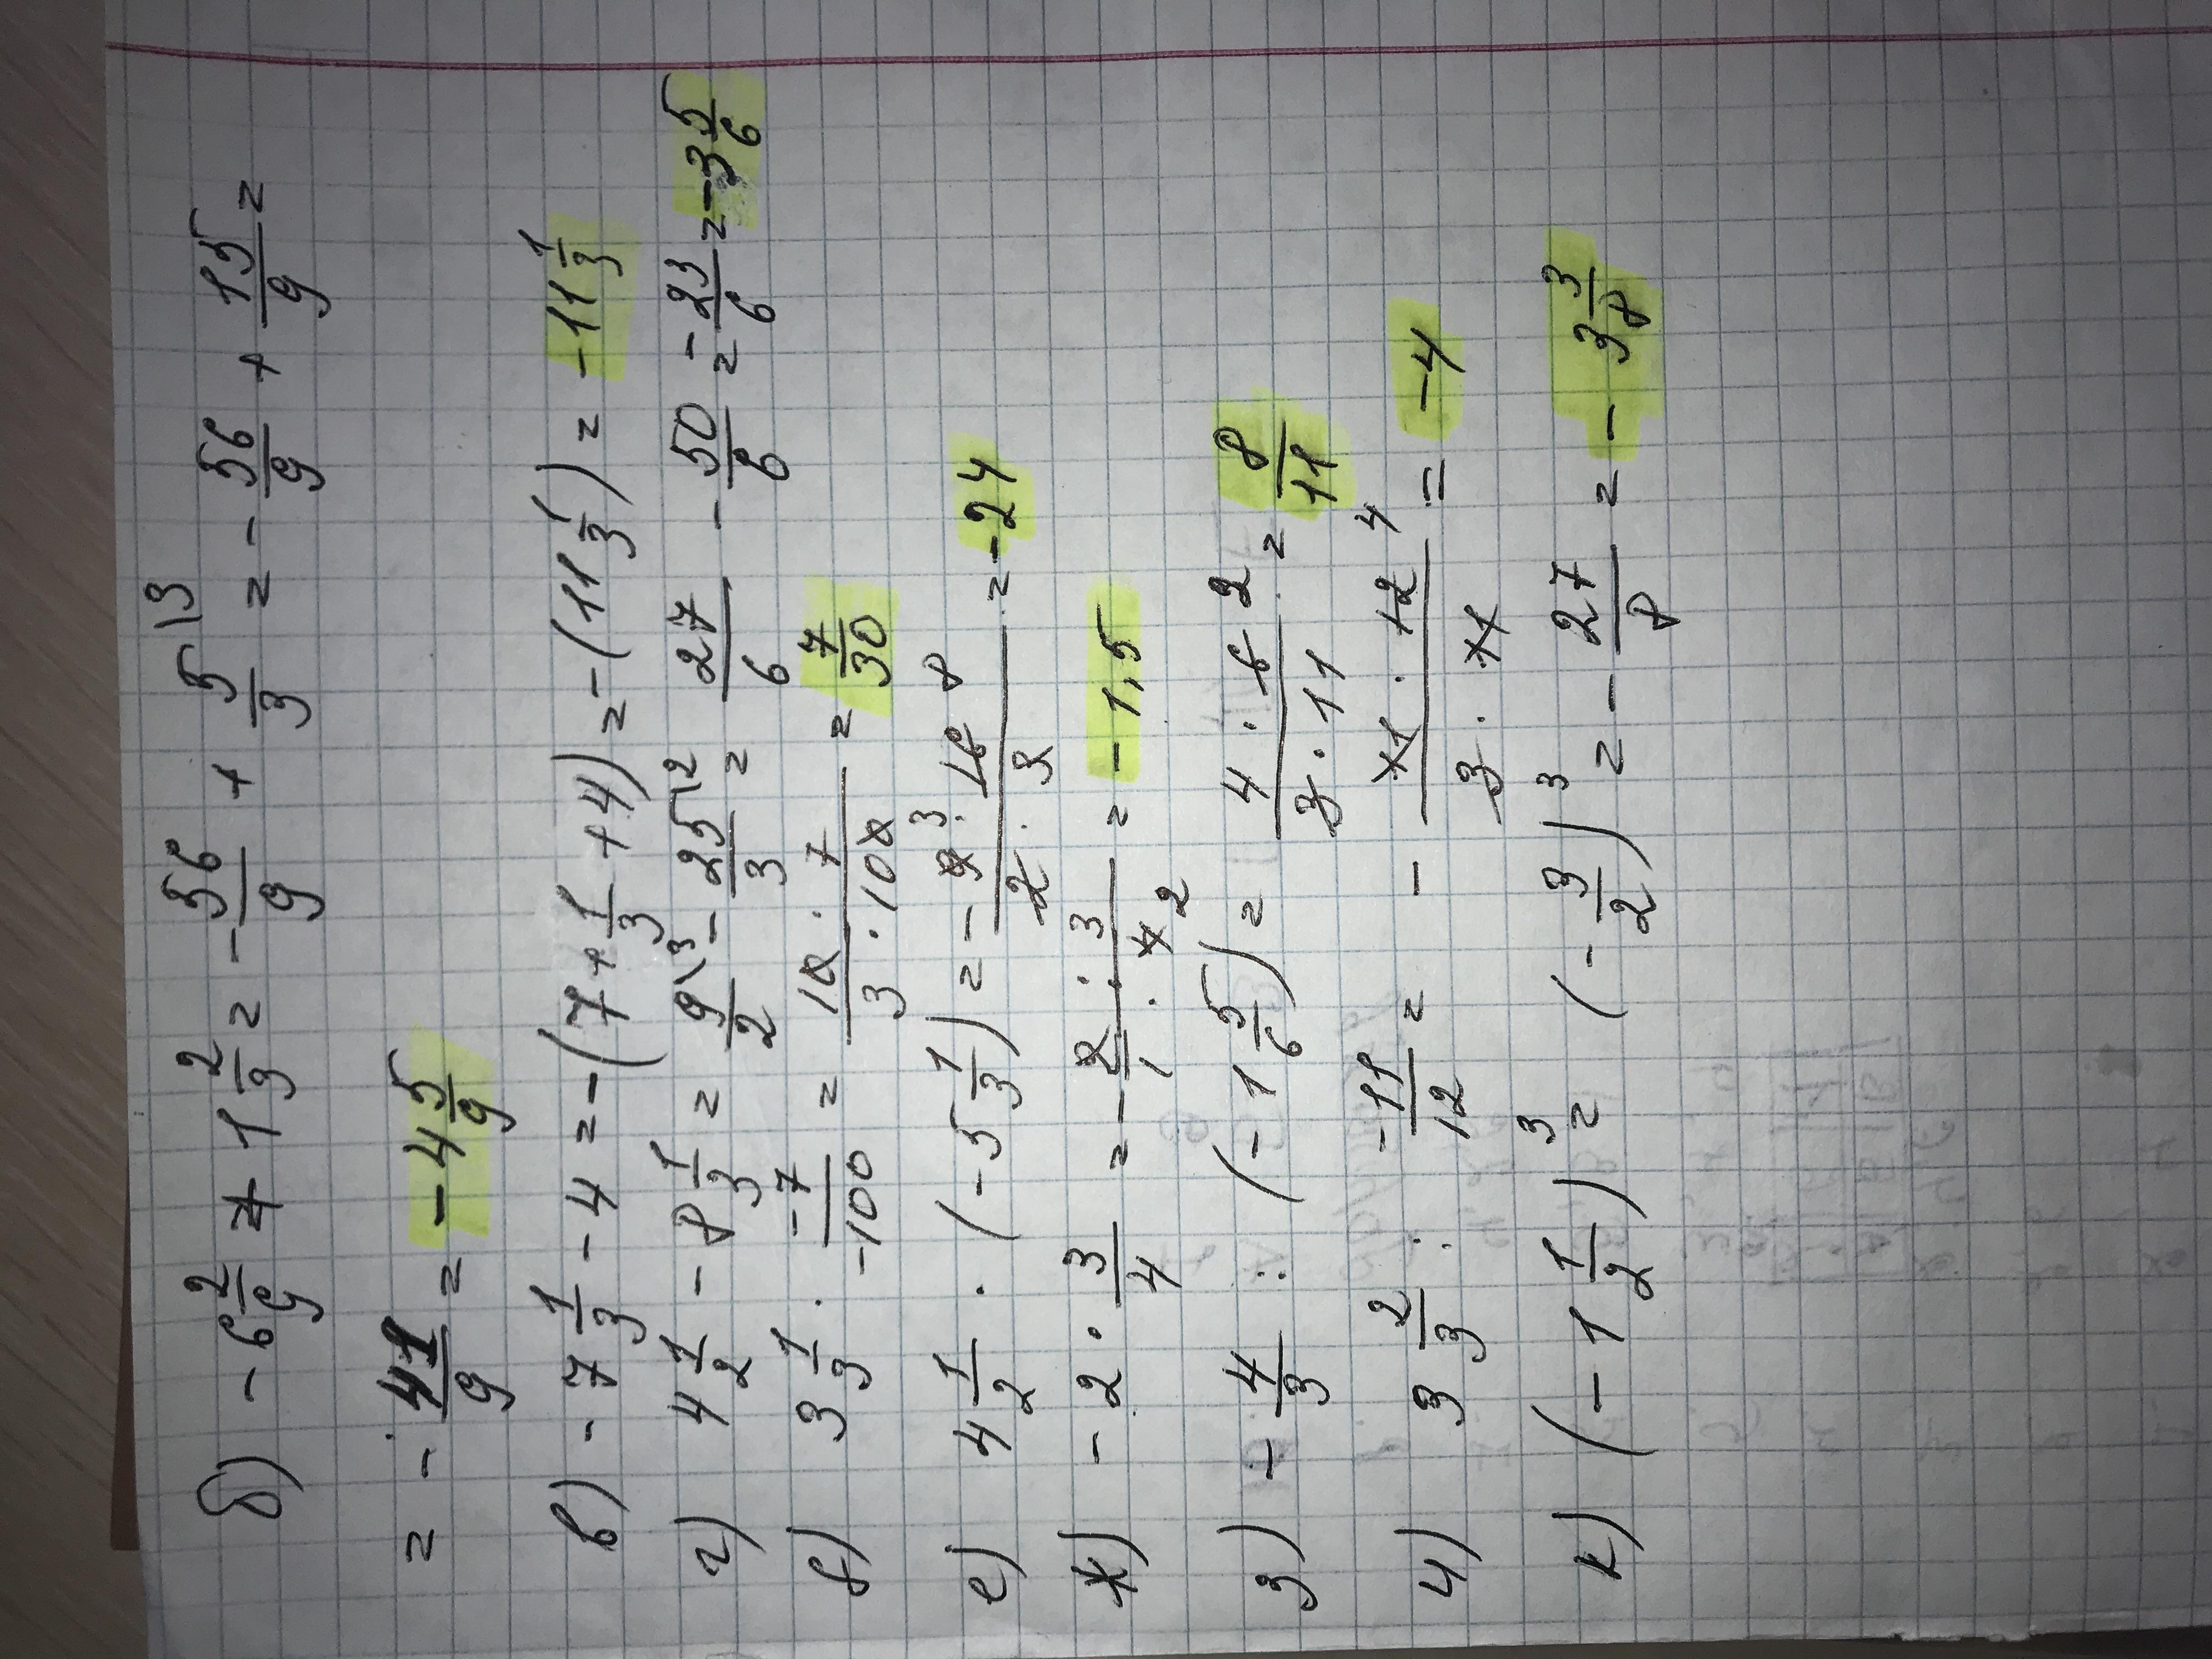 б) - 6 2/9 + 1 2/3 = - 56/9 + 5/3 \3 = - 56/9 + 15/9 =
= - 41/9 = - 4 5/9
в) - 7 1/3 - 4 = - (7 + 1/3 + 4) = - (11 1/3) = - 11 1/3
г) 4 1/2 - 8 1/3 = 9/2 \3 - 25/3 \2 = 27/6 - 50/6 = - 23/6 = - 3 5/6
3 1/3 · -7/-100 = 10 · 7 / 3 · 100 = 7/30
е) 4 1/2 · (- 5 1/3) = - 9 3 · 16 8 / 2 · 3 = - 24
ж) - 2 · 3/4 = - 2 · 3 / 1 · 4 2 = - 1,5
з) - 4/3 : (- 1 5/6) = 4 · 6 2 / 3 · 11 = 8/11
и) 3 2/3 : - 11/12 = - 11 · 12 4 / 3 · 11 = - 4
к) (- 1 1/2)³ = (- 3/2)³ = - 27/8 = - 3 3/8